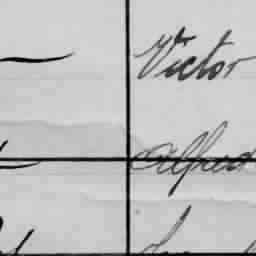 Victor
Alfred